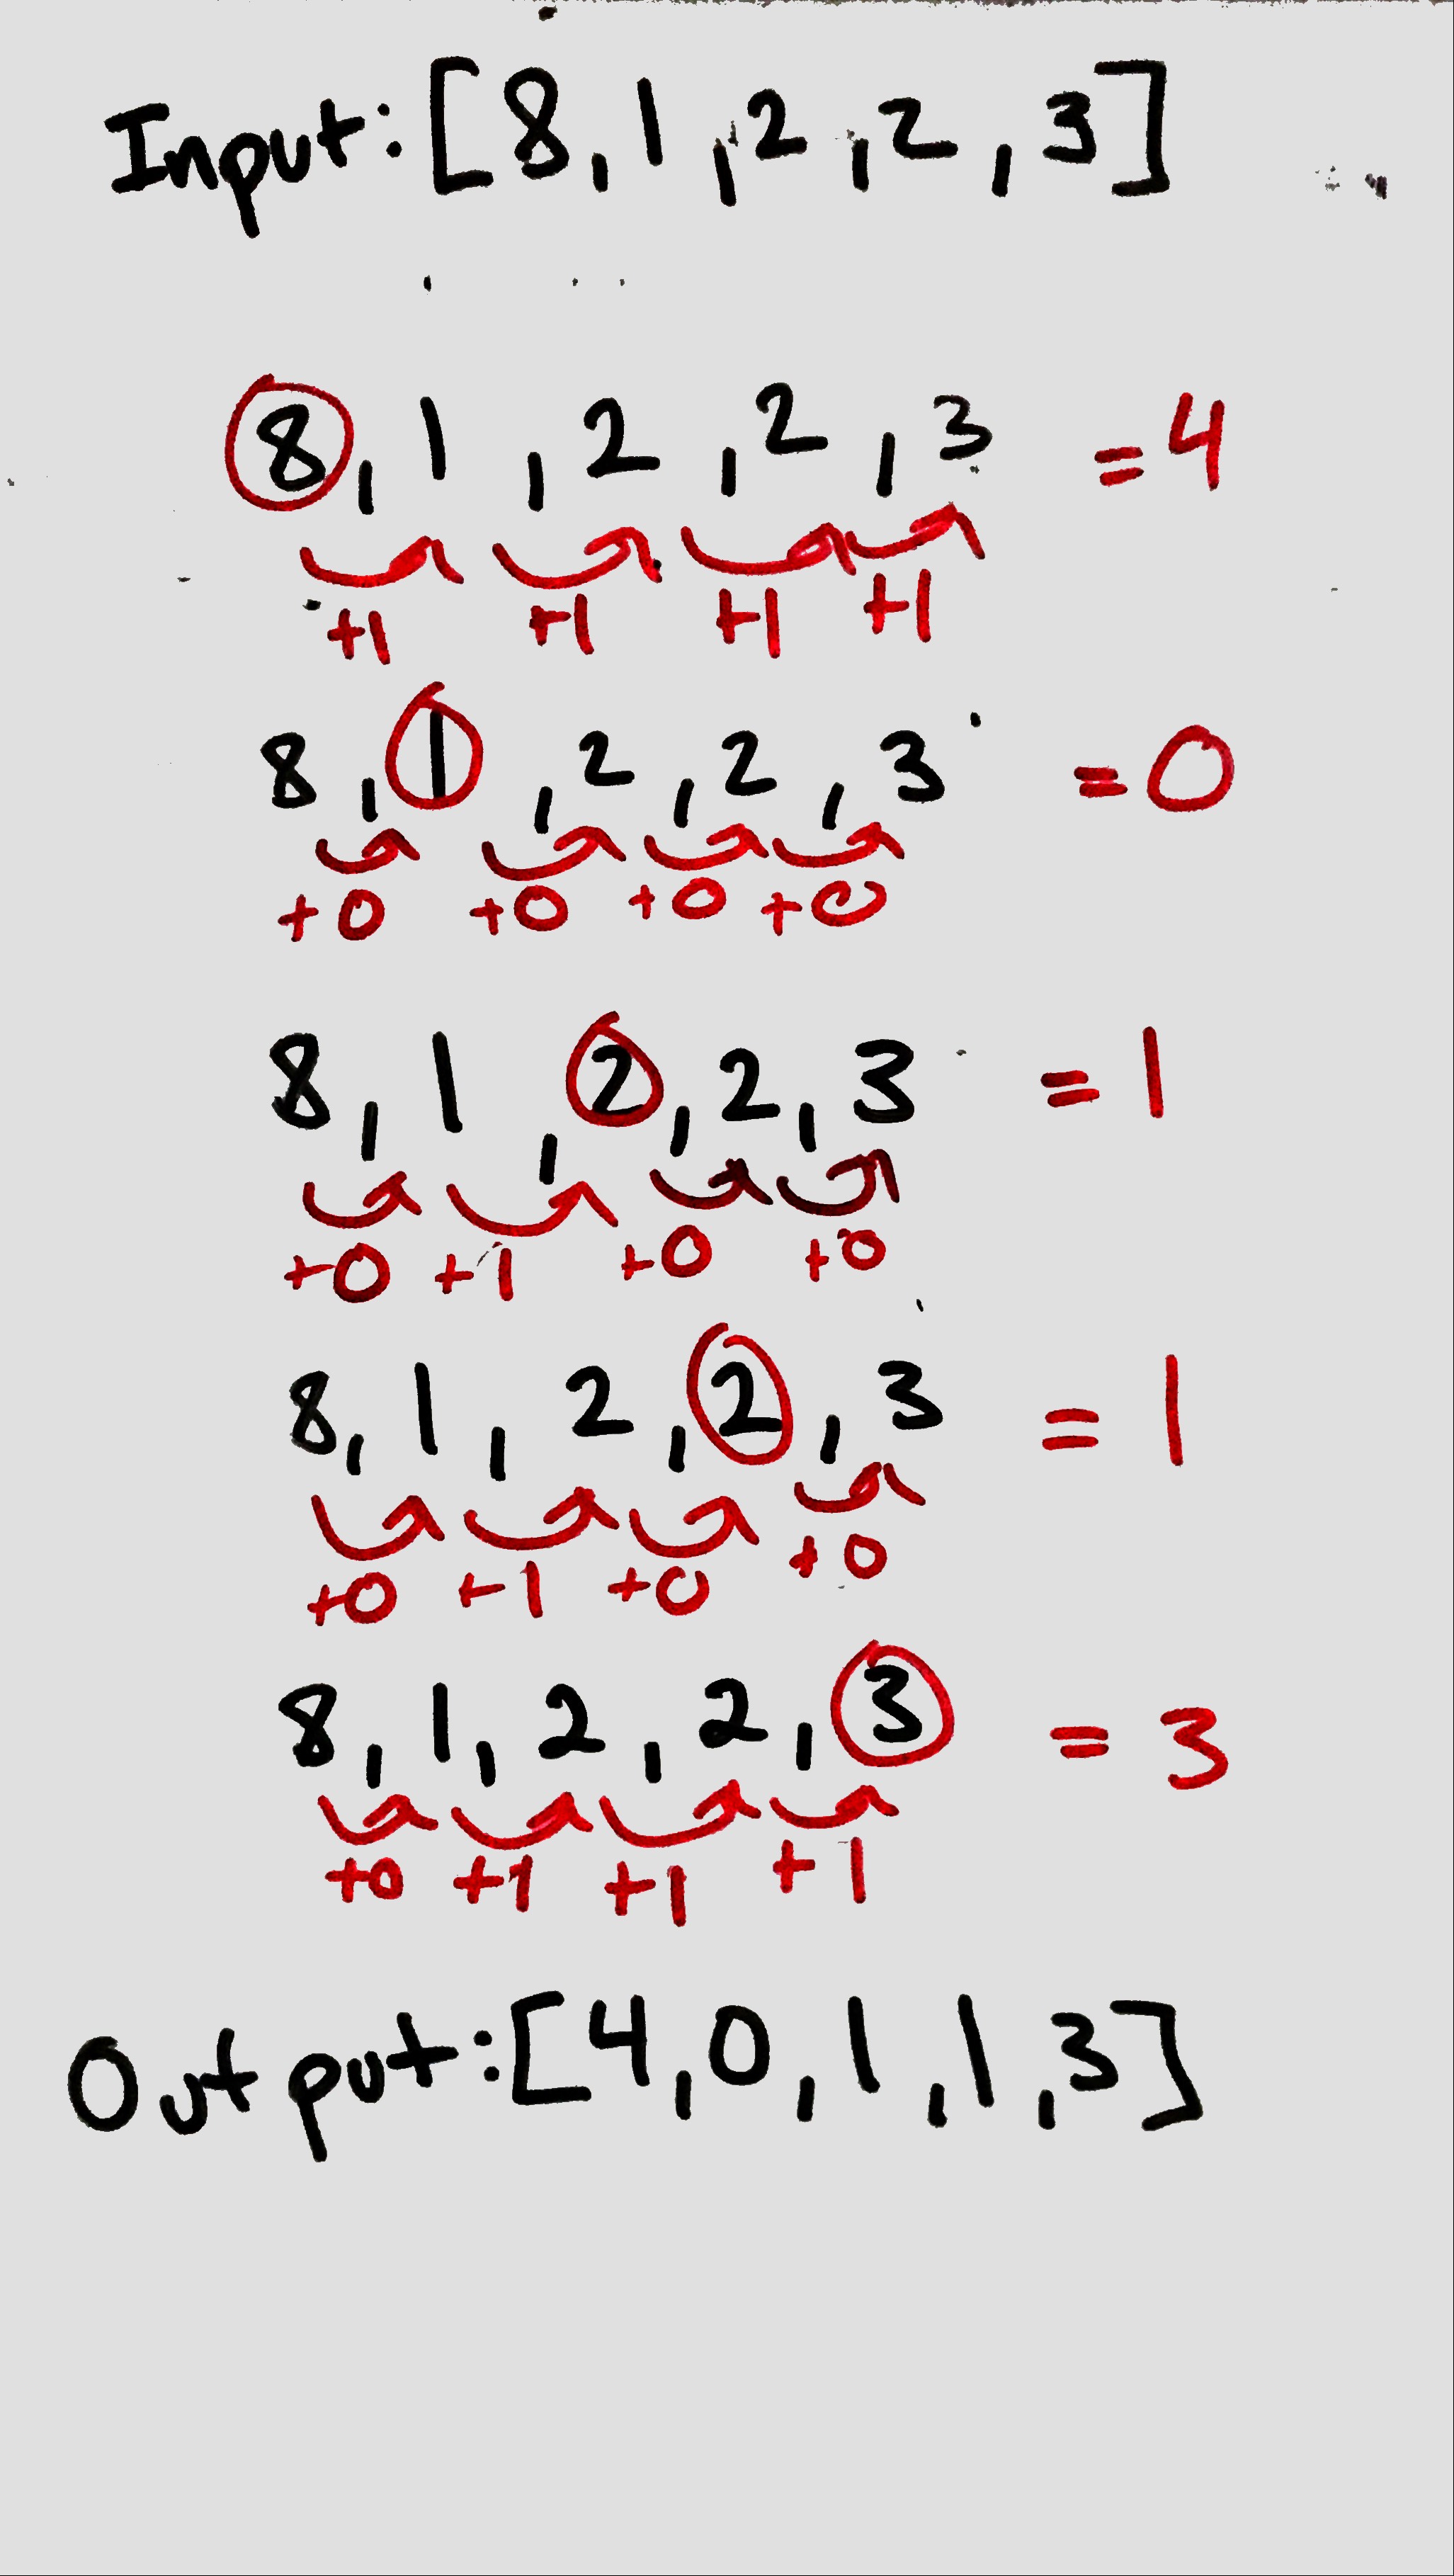 Input: [8, 1, 2, 2, 3]
8, 1, 2, 2, 3 = 4
+1 +1 +1 +1
8, 1, 2, 2, 3 = 0
+0 +0 +0 +0
8, 1, 2, 2, 3 = 1
+0 +1 +0 +0
8, 1, 2, 2, 3 = 1
+0 +1 +0 +0
8, 1, 2, 2, 3 = 3
+0 +1 +1 +1
Output: [4, 0, 1, 1, 3]